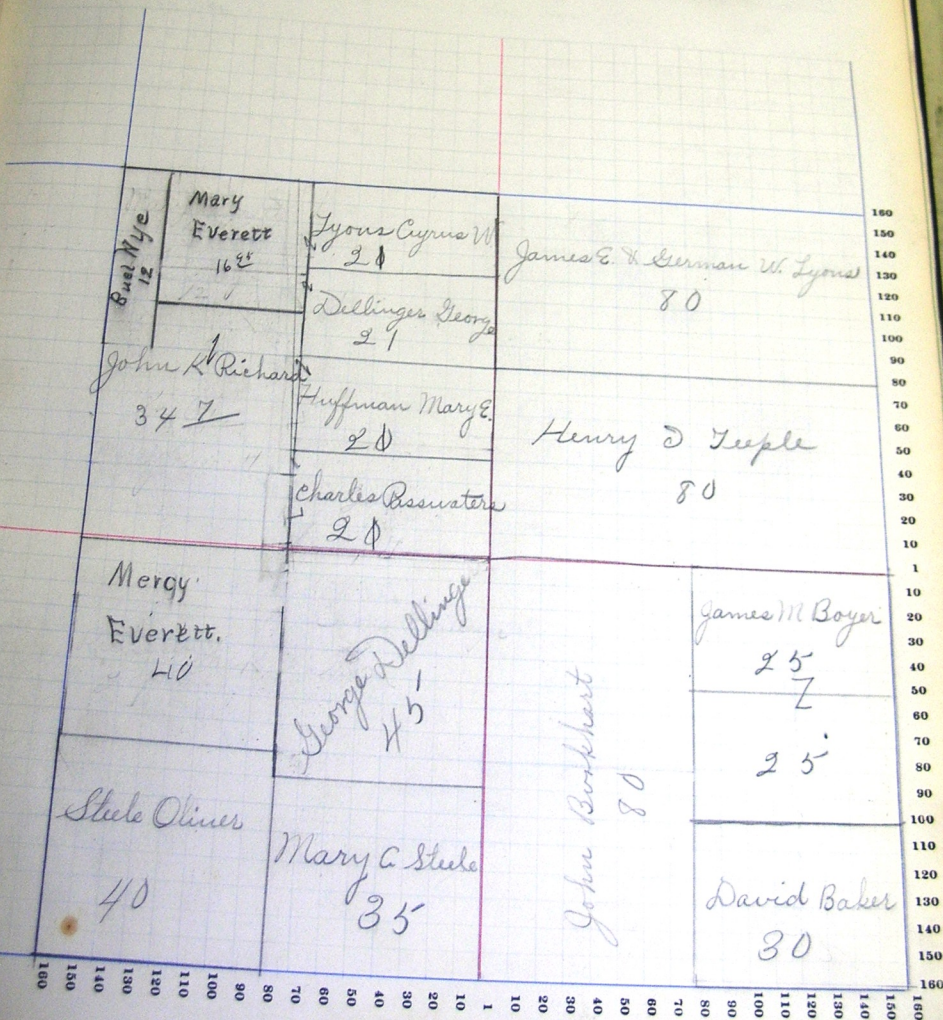 Buel Nye
12
Mary
Everett
16
Lyons Cyrus W
21
James E. & German W. Lyons
80
Dellinger George
21
John K Richard
34
Huffman Mary E.
20
Henry D Teeple
80
Charles Passwaters
20
Mercy
Everett.
40
George Dellinge
45
John Burkhart
80
James M Boyer
25
25
Steele Oliver
40
Mary C Steele
35
David Baker
30
160
150
140
130
120
110
100
90
80
70
60
50
40
30
20
10
1
10
20
30
40
50
60
70
80
90
100
110
120
130
140
150
160
160 150 140 130 120 110 100 90 80 70 60 50 40 30 20 10 1 10 20 30 40 50 60 70 80 90 100 110 120 130 140 150 160